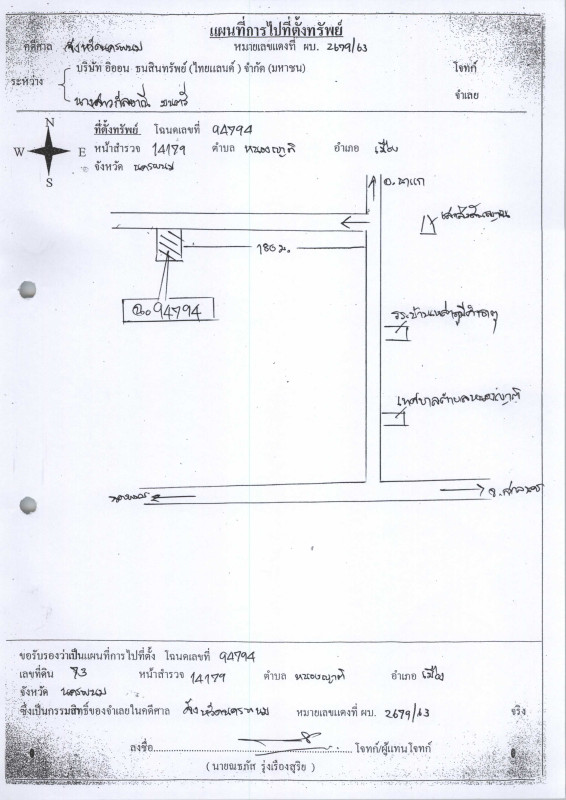 แผนที่การไปที่ตั้งทรัพย์
คดีศาล จังหวัดนครพนม หมายเลขแดงที่ ผบ. 2679/63
ระหว่าง บริษัท อิออน ธนสินทรัพย์ (ไทยแลนด์) จำกัด (มหาชน) โจทก์
นางสาว จำเลย
N
W E
S
ที่ตั้งทรัพย์ โฉนดเลขที่ 94794
หน้าสำรวจ 14179 ตำบล หนองญาติ อำเภอ เมือง
จังหวัด นครพนม
อ.นาแก
180 ม.
ฉ.94794
เทศบาลตำบลหนองญาติ
นครพนม
จ.สกลนคร
ขอรับรองว่าเป็นแผนที่การไปที่ตั้ง โฉนดเลขที่ 94794
เลขที่ดิน 73 หน้าสำรวจ 14179 ตำบล หนองญาติ อำเภอ เมือง
จังหวัด นครพนม
ซึ่งเป็นกรรมสิทธิ์ของจำเลยในคดีศาล จังหวัดนครพนม หมายเลขแดงที่ ผบ. 2679/63 จริง
ลงชื่อ โจทก์/ผู้แทนโจทก์
(นายณธภัส รุ่งเรืองสุริย)